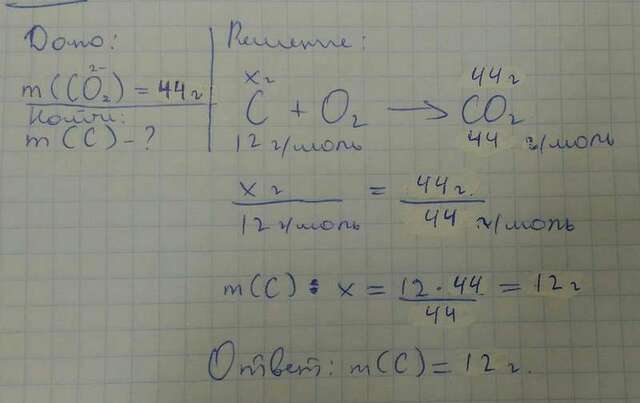 Дано:
m(CO₂²⁻) = 44 г
Найти:
m(C) – ?
Решение:
x г 44 г
C + O₂ ⟶ CO₂
12 г/моль 44 г/моль
x г / 12 г/моль = 44 г. / 44 г/моль
m(C) : x = 12 · 44 / 44 = 12 г
Ответ: m(C) = 12 г.